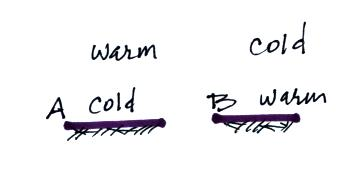 warm cold
A cold B warm